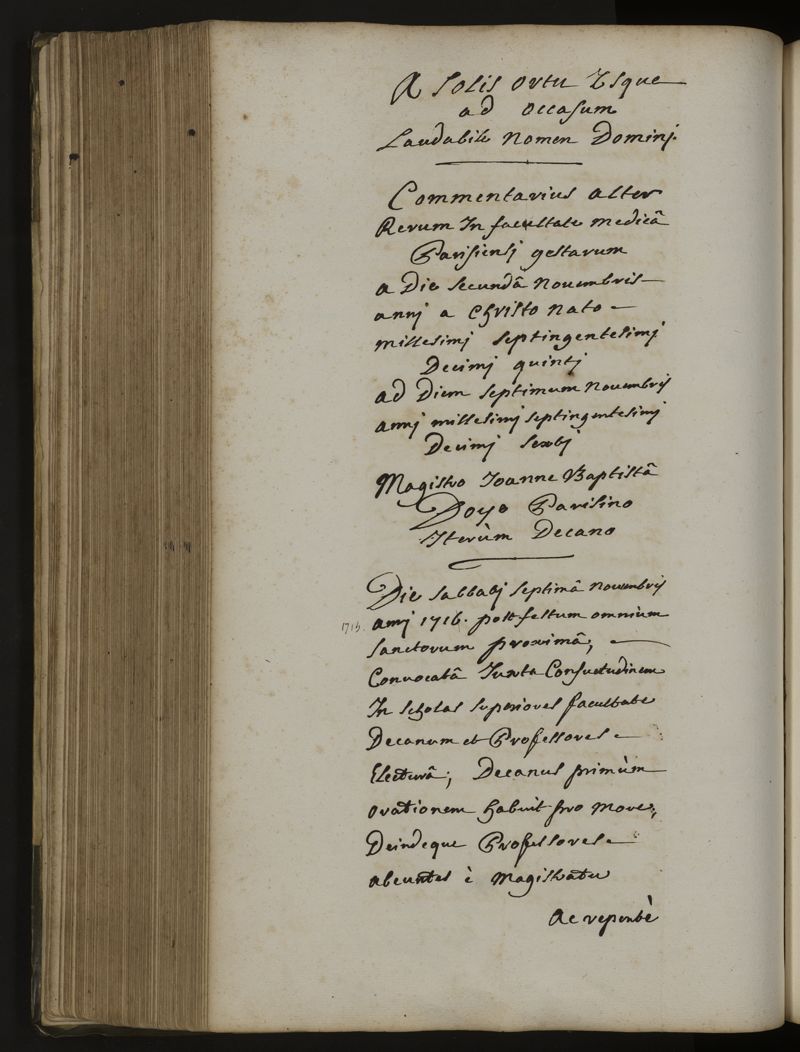 A Solis ortu Usque
ad occasum
Laudabile Nomen Dominj.
Commentarius alter
Rerum In facultate medicâ
Parisiensj gestarum
a Die secundâ Novembris
annj a Christo nato
millesimj septingentesimj
Decimj quintj
ad Diem septimum Novembris
annj millesimj septingentesimj
Decimj sextj
Magistro Joanne Baptistâ
Doye Parisino
Iterùm Decano
Die sabbatj septimâ Novembris
1715. annj 1716. post festum omnium
sanctorum proximâ,
Convocatâ Juxta Consuetudinem
In scholas superiores facultate
Decanum et Professores
Electurâ; Decanus primùm
orationem habuit pro more;
Deindeque Professores
abeuntes è magistratu
ac repentè